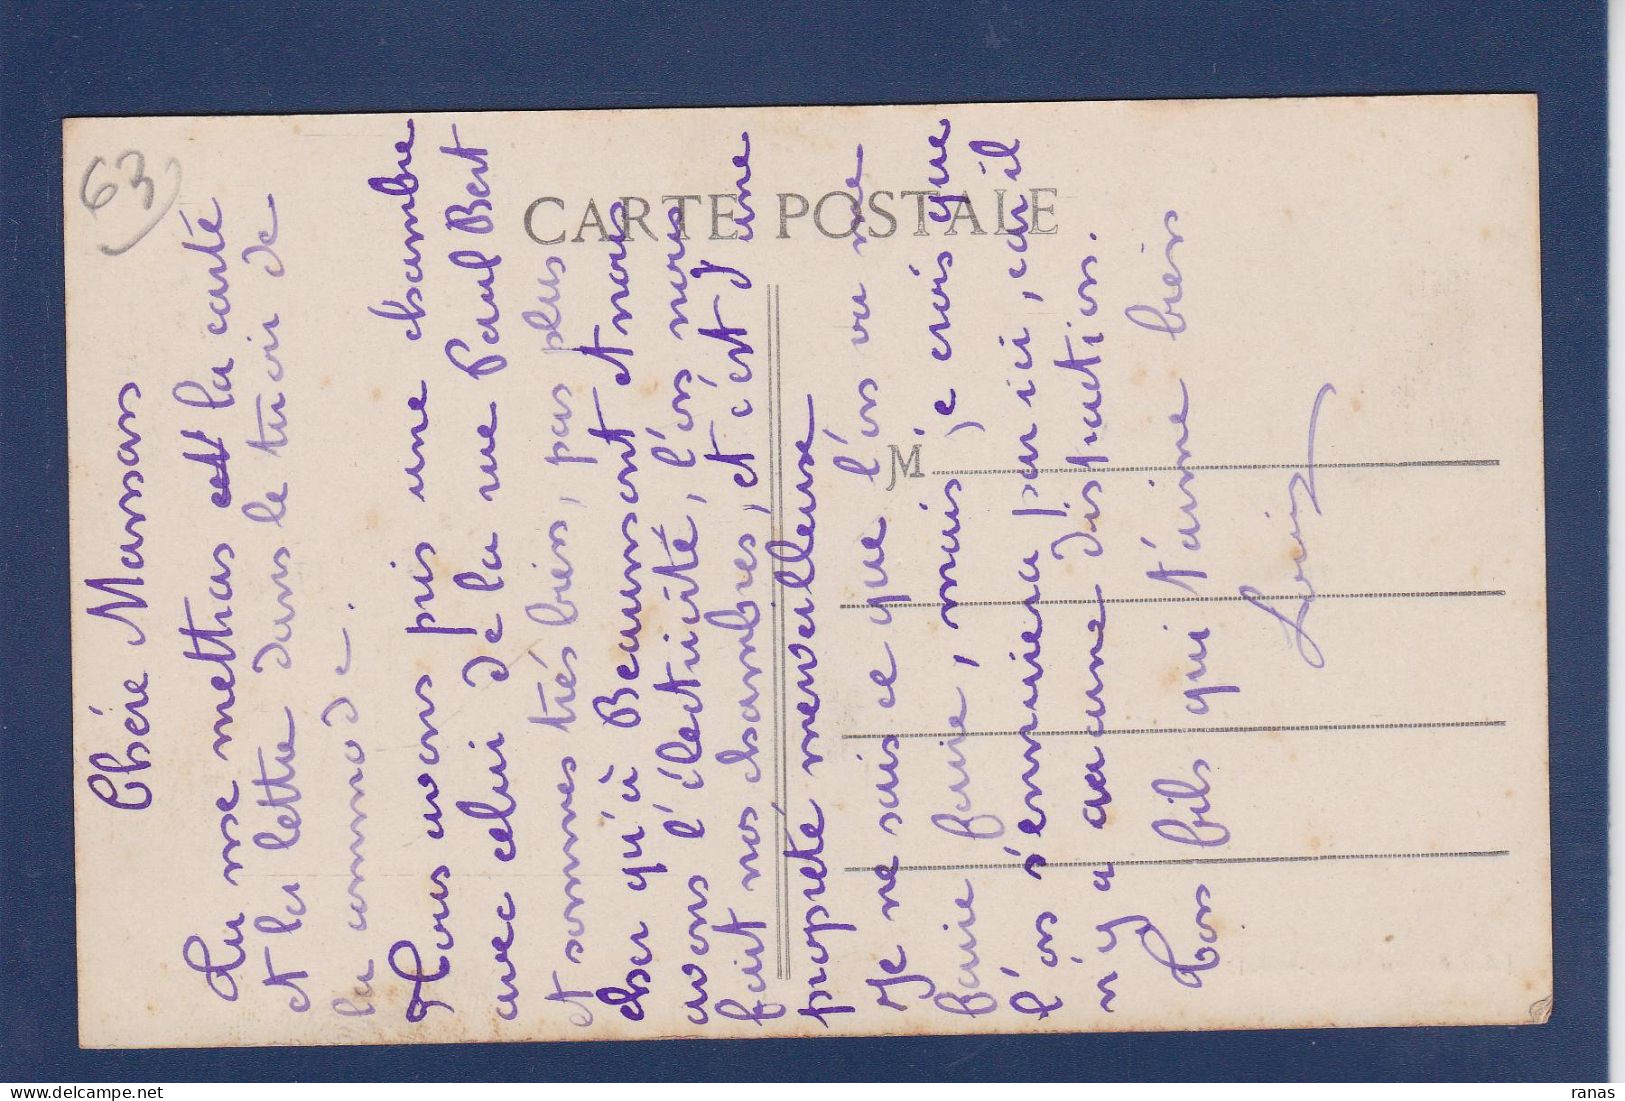 63
CARTE POSTALE
M
Chérie Manson
Tu me mettras et la carte
et la lettre dans le tiroir de
la commode.
Nous avons pris une chambre
avec celui de la rue Paul Bert
et sommes très bien, pas plus
cher qu'à Beaumont et nous
avons l'électricité, l'on nous
fait nos chambres, et c'est d'une
propreté merveilleuse
Je ne sais ce que l'on va me
faire faire, mais je crois que
l'on s'ennuiera par ici, car il
n'y a aucune distraction.
Ton fils qui t'aime bien
Louis
ranas